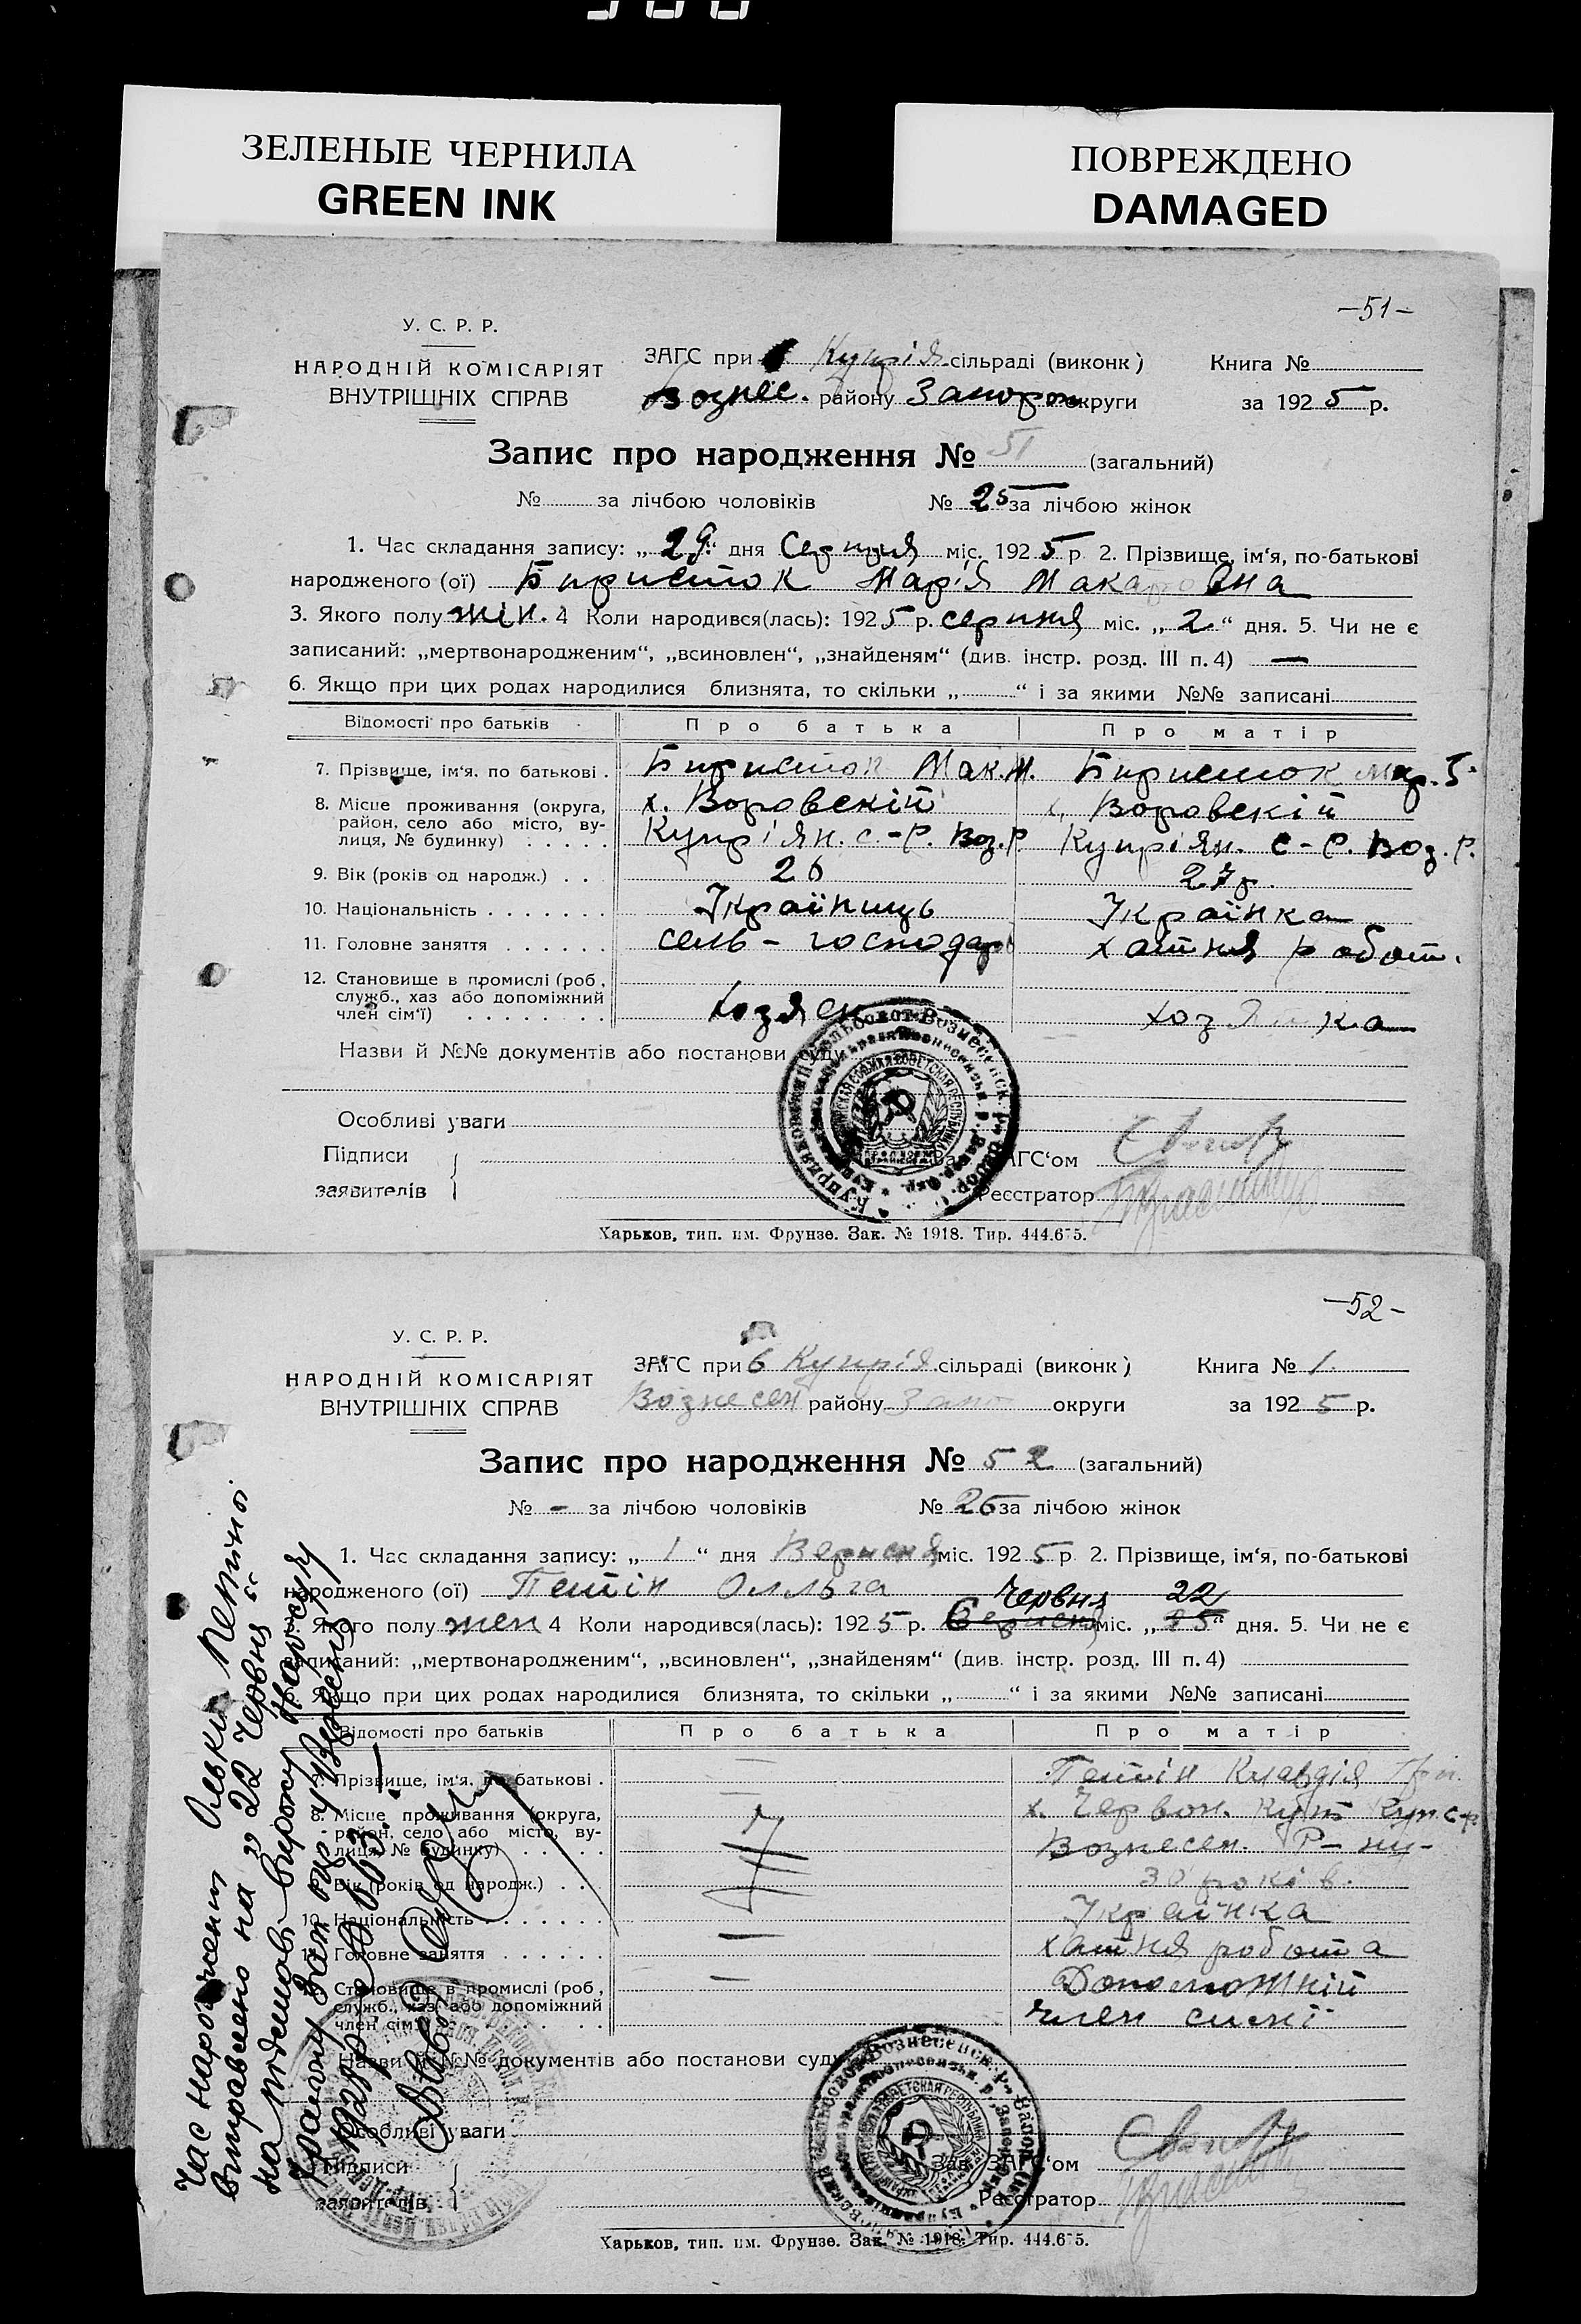 ЗЕЛЕНЫЕ ЧЕРНИЛА
GREEN INK
ПОВРЕЖДЕНО
DAMAGED
—51—
У. С. Р. Р.
НАРОДНІЙ КОМІСАРІЯТ
ВНУТРІШНІХ СПРАВ
ЗАГС при Купрія сільраді (виконк) Книга №
Вознес. району Запорож округи за 1925 р.
Запис про народження № 51 (загальний)
№ за лічбою чоловіків № 25 за лічбою жінок
1. Час складання запису: „29“ дня Серпня міс. 1925 р 2. Прізвище, ім‘я, по-батькові
народженого (ої) Биристок Марія Макаровна
3. Якого полу жін. 4 Коли народився(лась): 1925 р. серпня міс. „2“ дня. 5. Чи не є
записаний: „мертвонародженим“, „всиновлен“, „знайденям“ (див. інстр. розд. III п. 4) —
6. Якщо при цих родах народилися близнята, то скільки „ “ і за якими №№ записані
Відомості про батьків Про батька Про матір
7. Прізвище, ім‘я, по батькові . Биристок Мак. М. Биристок Мар.
8. Місце проживання (округа, район, село або місто, вулиця, № будинку) х. Воровскій х. Воровскій
Купріян. с.-р. Воз. р Купріян. с-р. Воз. р.
9. Вік (років од народж.) . . 26 27 р.
10. Національність Українець Українка
11. Головне заняття сель-господар хатня работ.
12. Становище в промислі (роб, служб., хаз або допоміжний член сім‘ї) хозяєн хозяйка
Назви й №№ документів або постанови суду
Особливі уваги
Підписи
заявителів
Зав. ЗАГС‘ом
Реєстратор
Харьков, тип. им. Фрунзе. Зак. № 1918. Тир. 444.675.
—52—
У. С. Р. Р.
НАРОДНІЙ КОМІСАРІЯТ
ВНУТРІШНІХ СПРАВ
ЗАГС при Купрія сільраді (виконк) Книга № 1.
Вознесен району Запо округи за 1925 р.
Запис про народження № 52 (загальний)
№ — за лічбою чоловіків № 26 за лічбою жінок
1. Час складання запису: „1“ дня Вересня міс. 1925 р 2. Прізвище, ім‘я, по-батькові
народженого (ої) Петін Олльга
Червня 22
3. Якого полу жен 4 Коли народився(лась): 1925 р. Вересня міс. „25“ дня. 5. Чи не є
записаний: „мертвонародженим“, „всиновлен“, „знайденям“ (див. інстр. розд. III п. 4)
6. Якщо при цих родах народилися близнята, то скільки „ “ і за якими №№ записані
Відомості про батьків Про батька Про матір
7. Прізвище, ім‘я, по батькові . — Петін Клавдія
8. Місце проживання (округа, район, село або місто, вулиця, № будинку) х. Червон. Кут Куп. с-р
Вознесен. Р-ну-
9. Вік (років од народж.) . . 30 років.
10. Національність Українка
11. Головне заняття — хатня робота
12. Становище в промислі (роб, служб., хаз або допоміжний член сім‘ї) — Допоможній
член симї
Назви й №№ документів або постанови суду
Особливі уваги
Підписи
заявителів
Зав. ЗАГС‘ом
Реєстратор
Харьков, тип. им. Фрунзе. Зак. № 1918. Тир. 444.675.
Час народження Ольки Петіної
виправлено на „22 Червня“
на підставі вироку Нарсуду